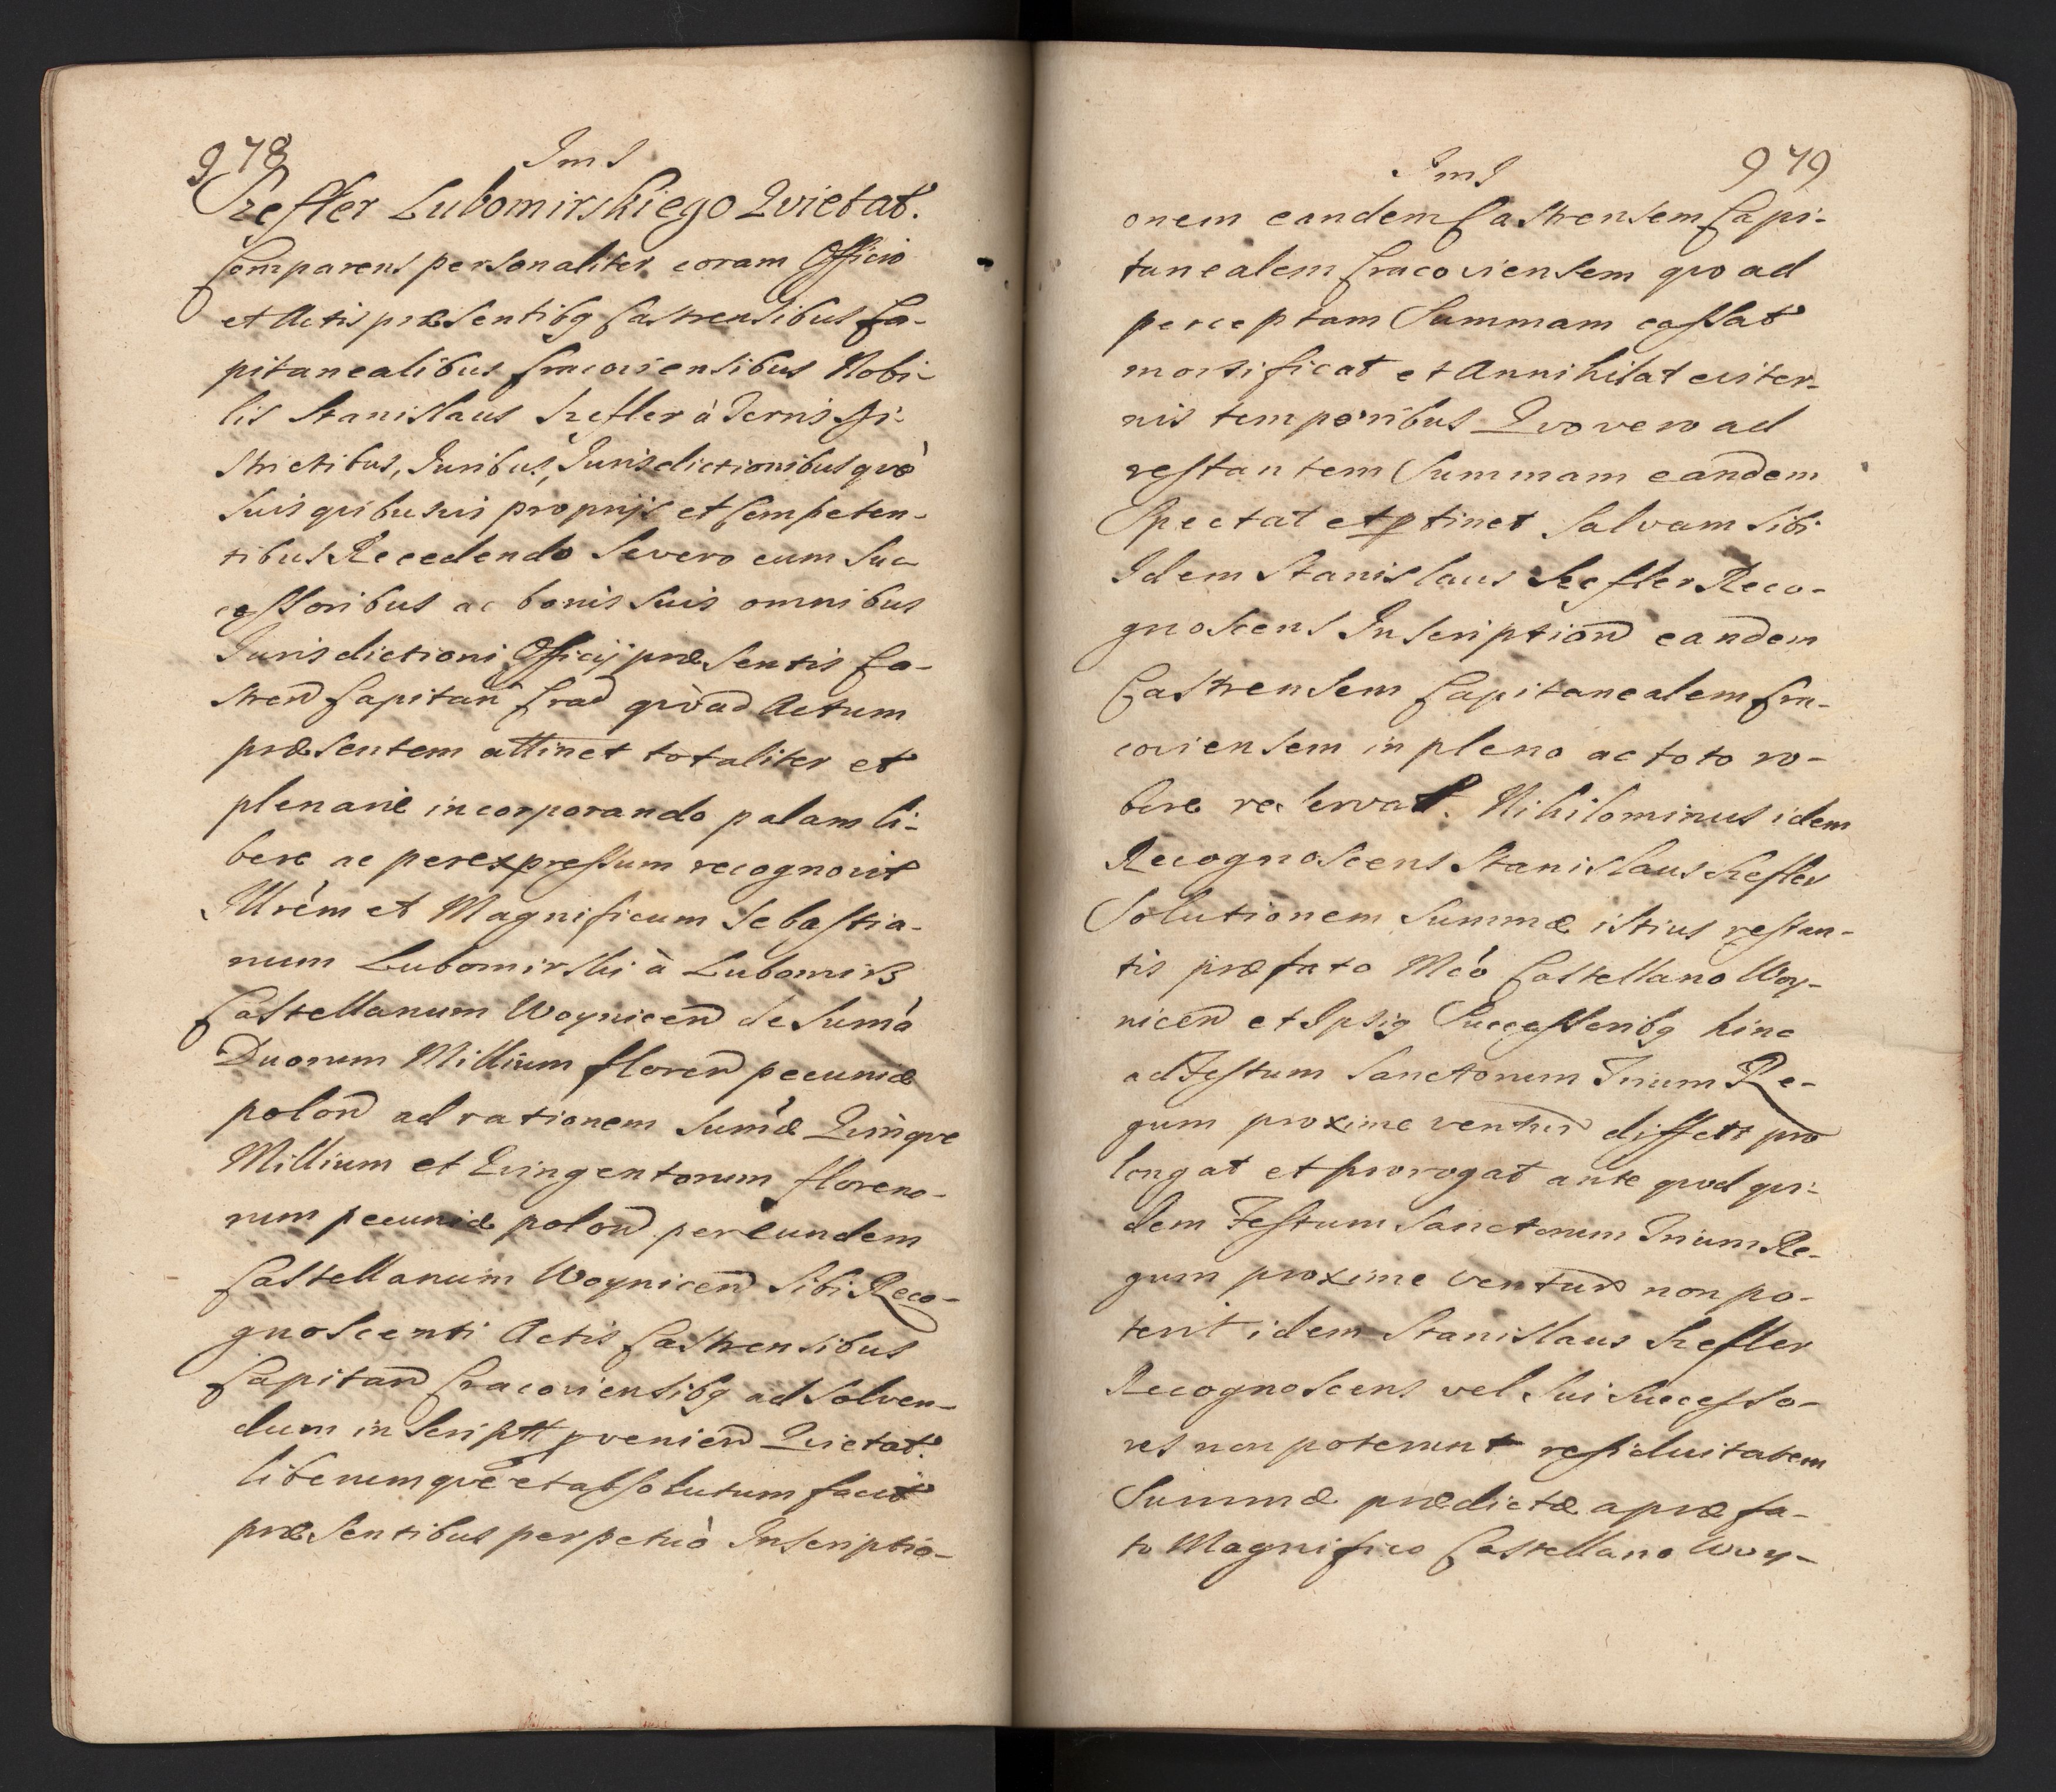 978
Jms
Szefler Lubomirskiego Qvietat.
Comparens personaliter coram Officio
et Actis præsentibq Castrensibus Ca-
pitanealibus Cracoviensibus Nobi-
lis Stanislaus Szefler à Terris Di-
strictibus, Juribus, Jurisdictionibusqvè
suis qvibusvis proprijs et Competen-
tibus Recedendo severo cum suc
cessoribus ac bonis suis omnibus
Jurisdictioni Officij præsentis Ca-
stren Capitan Crac qvoad Actum
præsentem attinet totaliter et
plenarie incorporando palam li-
bere ac per expressum recognovit
Illrem et Magnificum Sebastia-
num Lubomirski à Lubomirz
Castellanum Woynicen de Suma
Duorum Millium floren pecuniæ
polon ad rationem Sumæ Qvinqve
Millium et Qvingentorum floreno-
rum pecuniæ polon per eundem
Castellanum Woynicen Sibi Reco-
gnoscenti Actis Castrensibus
Capitan Cracoviensibq ad Solven-
dum inscript pvenien Qvietat.
liberumqve et absolutum facit
præsentibus perpetuò Inscriptio-
979
Jms
onem eandem Castrensem Capi-
tanealem Cracoviensem qvo ad
perceptam Summam cassat
mortificat et Annihilat eviter-
nis temporibus Qvo vero ad
restantem Summam eandem
Spectat et ptinet Salvam sibi
Idem Stanislaus Szefler Reco-
gnoscens Inscription eandem
Castrensem Capitanealem Cra-
coviensem in pleno ac toto ro-
bore reservat. Nihilominus idem
Recognoscens Stanislaus Szefler
Solutionem Summæ istius restan-
tis præfato Mco Castellano Woy-
nicen et Ipsiq Successoribq hinc
ad Festum Sanctorum Trium Re-
gum proxime ventur differt pro
longat et prorogat ante qvod qvi-
dem Festum Sanctorum Trium Re-
gum proxime ventur non po-
terit idem Stanislaus Szefler
Recognoscens vel sui Successo-
res non poterunt residuitatem
Summæ prædictæ a præfa-
to Magnifico Castellano Woy-